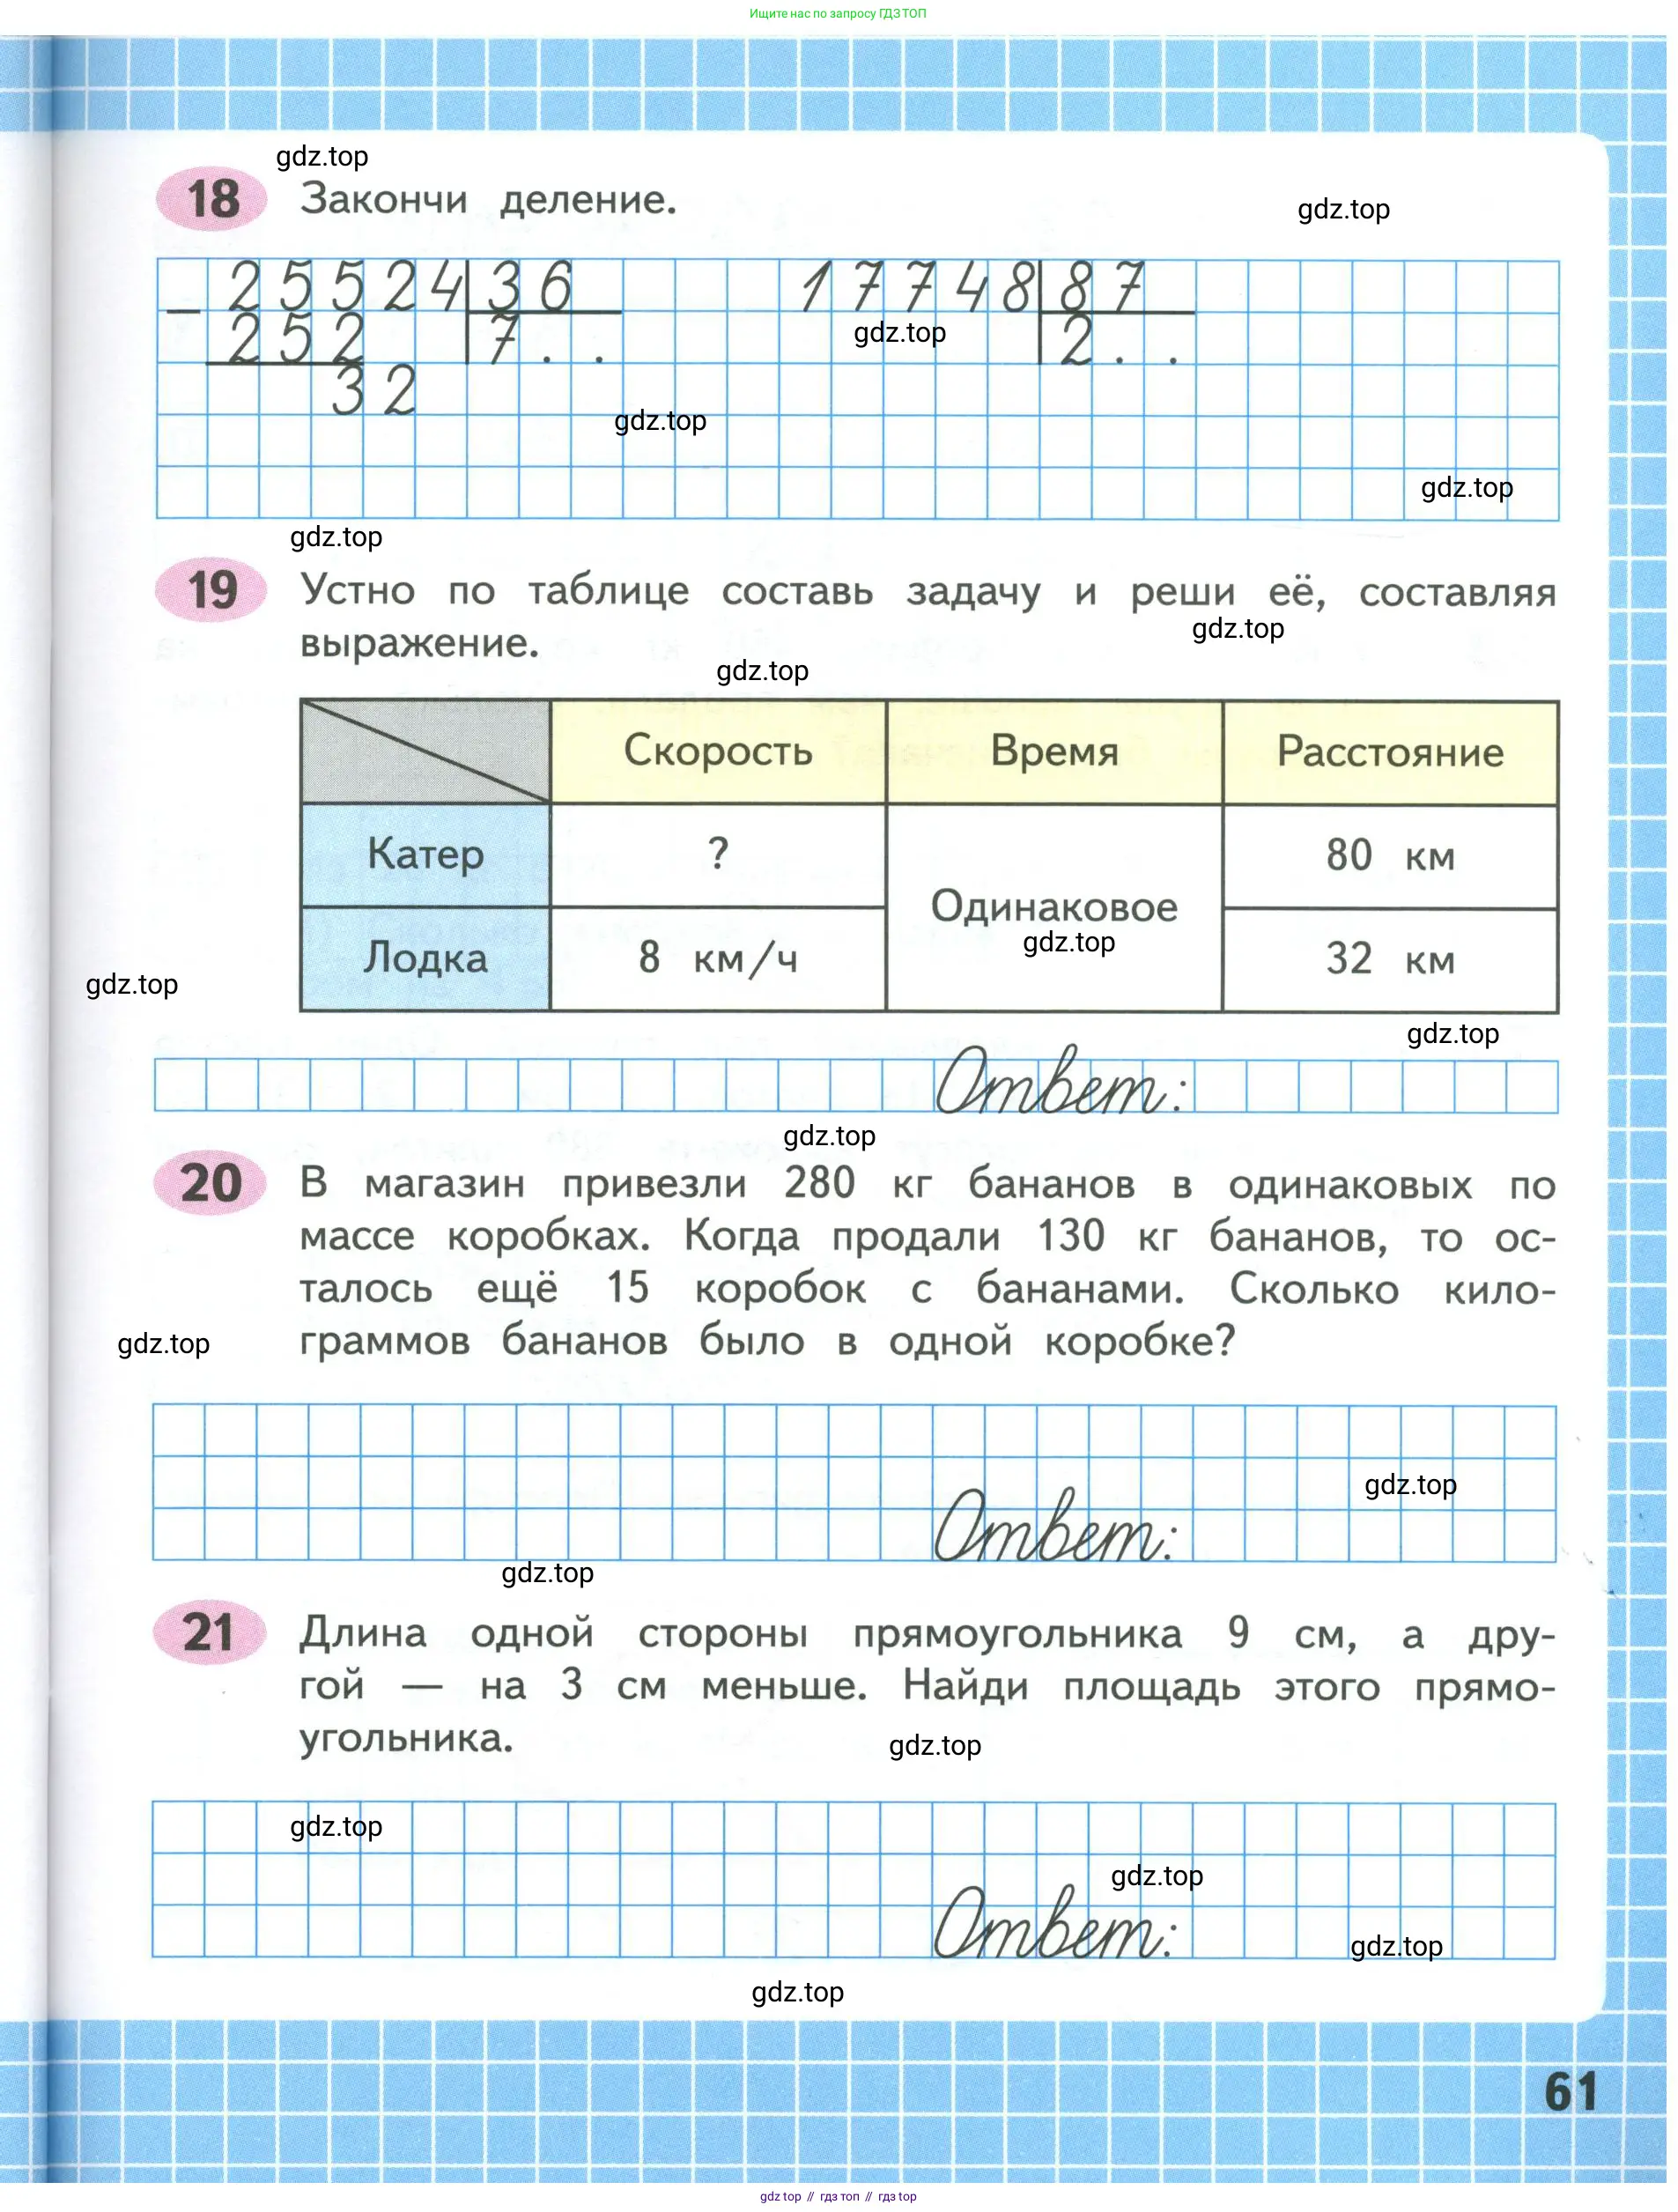 Ищите нас по запросу ГДЗ ТОП
gdz.top
18 Закончи деление.
gdz.top
25524 36 17748 87
− 252 7 . . gdz.top 2 . .
32
gdz.top
gdz.top
gdz.top
19 Устно по таблице составь задачу и реши её, составляя
gdz.top
выражение.
gdz.top
Скорость Время Расстояние
Катер ? 80 км
Одинаковое
gdz.top
Лодка 8 км/ч 32 км
gdz.top
gdz.top
Ответ:
gdz.top
20 В магазин привезли 280 кг бананов в одинаковых по
массе коробках. Когда продали 130 кг бананов, то ос-
талось ещё 15 коробок с бананами. Сколько кило-
gdz.top
граммов бананов было в одной коробке?
gdz.top
Ответ:
gdz.top
21 Длина одной стороны прямоугольника 9 см, а дру-
гой — на 3 см меньше. Найди площадь этого прямо-
угольника.
gdz.top
gdz.top
gdz.top
Ответ:
gdz.top
gdz.top
61
gdz top // гдз топ // гдз top